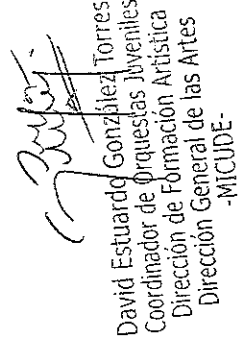 David Estuardo González Torres
Coordinador de Orquestas Juveniles
Dirección de Formación Artística
Dirección General de las Artes
-MICUDE-